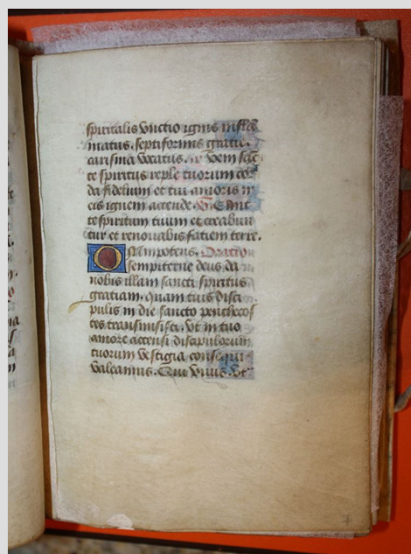 spiritalis vnctio ignis infla
matus. septiformis gratie.
carisma vocatus. Veni sac
te spiritus reple tuorum cor
da fidelium et tui amoris in
eis ignem accende. Emit
te spiritum tuum et creabun
tur et renouabis faciem terre.
Omnipotens. Oratio
sempiterne deus da
nobis illam sancti spiritus
gratiam. quam tuis disci
pulis in die sancto penthecos
tes transmisisti. vt in tuo
amore accensi discipulorum
tuorum vestigia consequi
valeamus. Qui viuis et